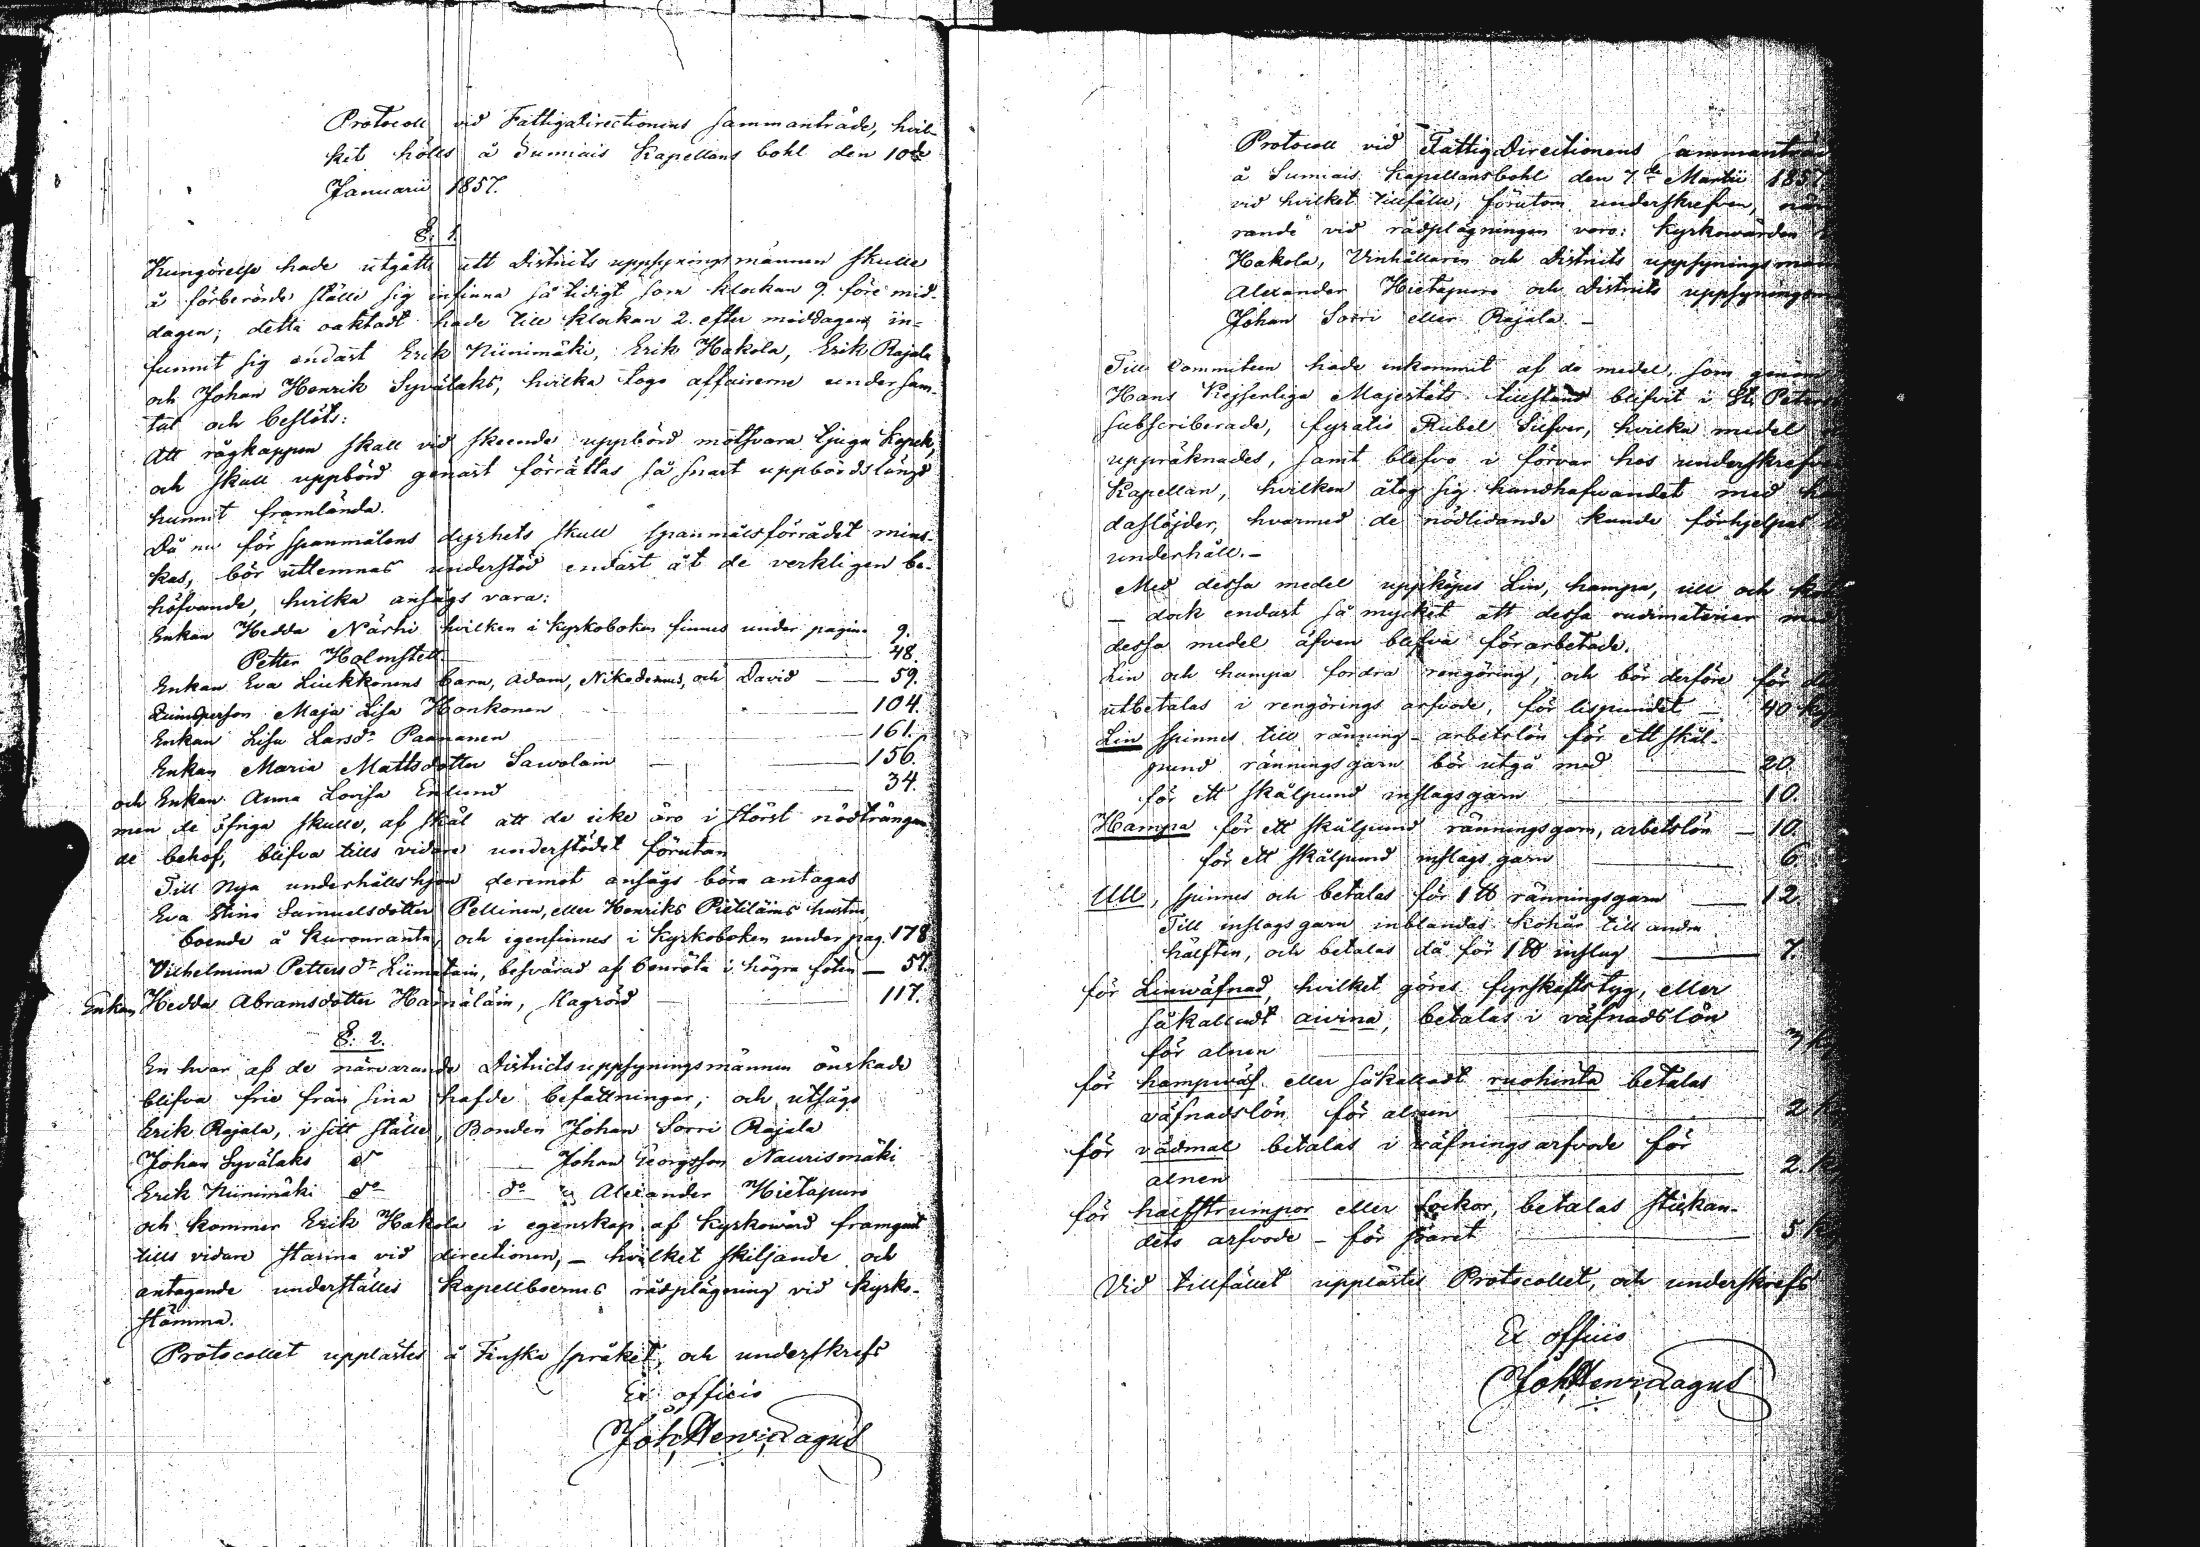 Protocoll vid Fattigdirectionens sammanträde, hvil-
ket hölls å Sumiais Kapellans bohl den 10de
Januarii 1857.
§. 1.
Kungörelse hade utgått att Districts uppsyningsmännen skulle
å förberörde ställe sig infinna så tidigt som klockan 9. före mid-
dagen; detta oaktadt hade till klockan 2. efter middagen in-
funnit sig endast Erik Niinimäki, Erik Hakola, Erik Rajala
och Johan Henrik Syvälaks, hvilka togo affairerne under sam-
tal och beslöts:
Att rågkappen skall vid skeende uppbörd motsvara tjugu Kopek,
och skall uppbörd genast förrättas så snart uppbördslängd
hunnit framlända.
Då nu för spanmålens dyrhets skull spanmålsförrådet mins-
kas, bör utlemnas understöd endast åt de verkligen be-
höfvande, hvilka ansågs vara:
Enkan Hedda Närhi hvilken i Kyrkoboken finnes under pagina 9.
Petter Holmstett 48.
Enkan Eva Liukkonens barn, Adam, Nikodemus, och David 59.
Qvinsperson Maja Lisa Honkonen 104.
Enkan Lisa Larsdr Paananen 161.
Enkan Maria Mattsdotter Sawolain 156.
och Enkan Anna Lovisa Enlund 34.
men de öfriga skulle, af skäl att de icke äro i störst nödträngan-
de behof, blifva tills vidare understödet förutan
Till nya underhållshjon deremot ansågs böra antagas
Eva Stina Samuelsdotter Pellinen, eller Henriks Pietiläins hustru,
boende å Kuronranta, och igenfinnes i Kyrkoboken under pag. 178
Vilhelmina Pettersdr Liimatain, besvärad af benröta i högra foten 57.
Enkan Hedda Abramsdotter Hämäläin, slagrörd 117.
§. 2.
En hvar af de närvarande Districtsuppsyningsmännen önskade
blifva frie från sina hafde befattningar; och utsågs
Erik Rajala, i sitt ställe, Bonden Johan Sorri Rajala
Johan Syvälaks do Johan Georgsson Naurismäki
Erik Niinimäki do do Alexander Hietapuro
och kommer Erik Hakola i egenskap af Kyrkovärd framgent
tills vidare stanna vid directionen, – hvilket skiljande och
antagande underställes Kapellboernes rådplägning vid Kyrko-
stämma.
Protocollet upplästes å Finska språket, och underskrefs
Ex officio
Joh. Henr. Dagus
Protocoll vid FattigDirectionens sammanträd
å Sumiais Kapellansbohl den 7de Martii 1857,
vid hvilket tillfälle, förutom underskrefven, när
rande vid rådplägningen voro: Kyrkowärden
Hakola, Vinhållaren och Districts uppsynings man
Alexander Hietapuro och Districts uppsynings
Johan Sorri eller Rajala. –
Till Committeen hade inkommit af de medel, som genom
Hans Kejserliga Majestets tillstånd blifvit i St. Peters
subscriberade, fyratio Rubel Silfver, hvilka medel
uppräknades, samt blefvo i förvar hos underskrefv
Kapellan, hvilken åtog sig handhafwandet med
daslöjder, hvarmed de nödlidande kunde förhjelpas
underhåll. –
Med dessa medel uppköpes Lin, hampa, ull och
– dock endast så mycket att dessa rudimaterier med
dessa medel äfven blifva förarbetade.
Lin och hampa fordra rengöring, och bör derföre för
utbetalas i rengörings arfvode, för lispundet – 40
Lin spinnes till ränning – arbetslön för ett skål-
pund ränningsgarn bör utgå med 20.
för ett skålpund inslagsgarn 10.
Hampa för ett skålpund ränningsgarn, arbetslön – 10.
för ett skålpund inslags garn 6.
Ull, spinnes och betalas för 1 ℔ ränningsgarn 12.
Till inslagsgarn inblandas kohår till andra
hälften, och betalas då för 1 ℔ inslag 7.
för Linwäfnad, hvilket göres fyrskaftstyg, eller
såkalladt aivina, betalas i väfnadslön
för alnen 3 k
för hampwäf eller såkalladt ruohinta betalas
väfnadslön för alnen 2 k
för vadmal betalas i wäfningsarfvode för
alnen 2. k
för halfstrumpor eller sockor, betalas stickan-
dets arfvode – för paret 5 k
Vid tillfället upplästes Protocollet, och underskrefs
Ex officio
Joh. Henr. Dagus